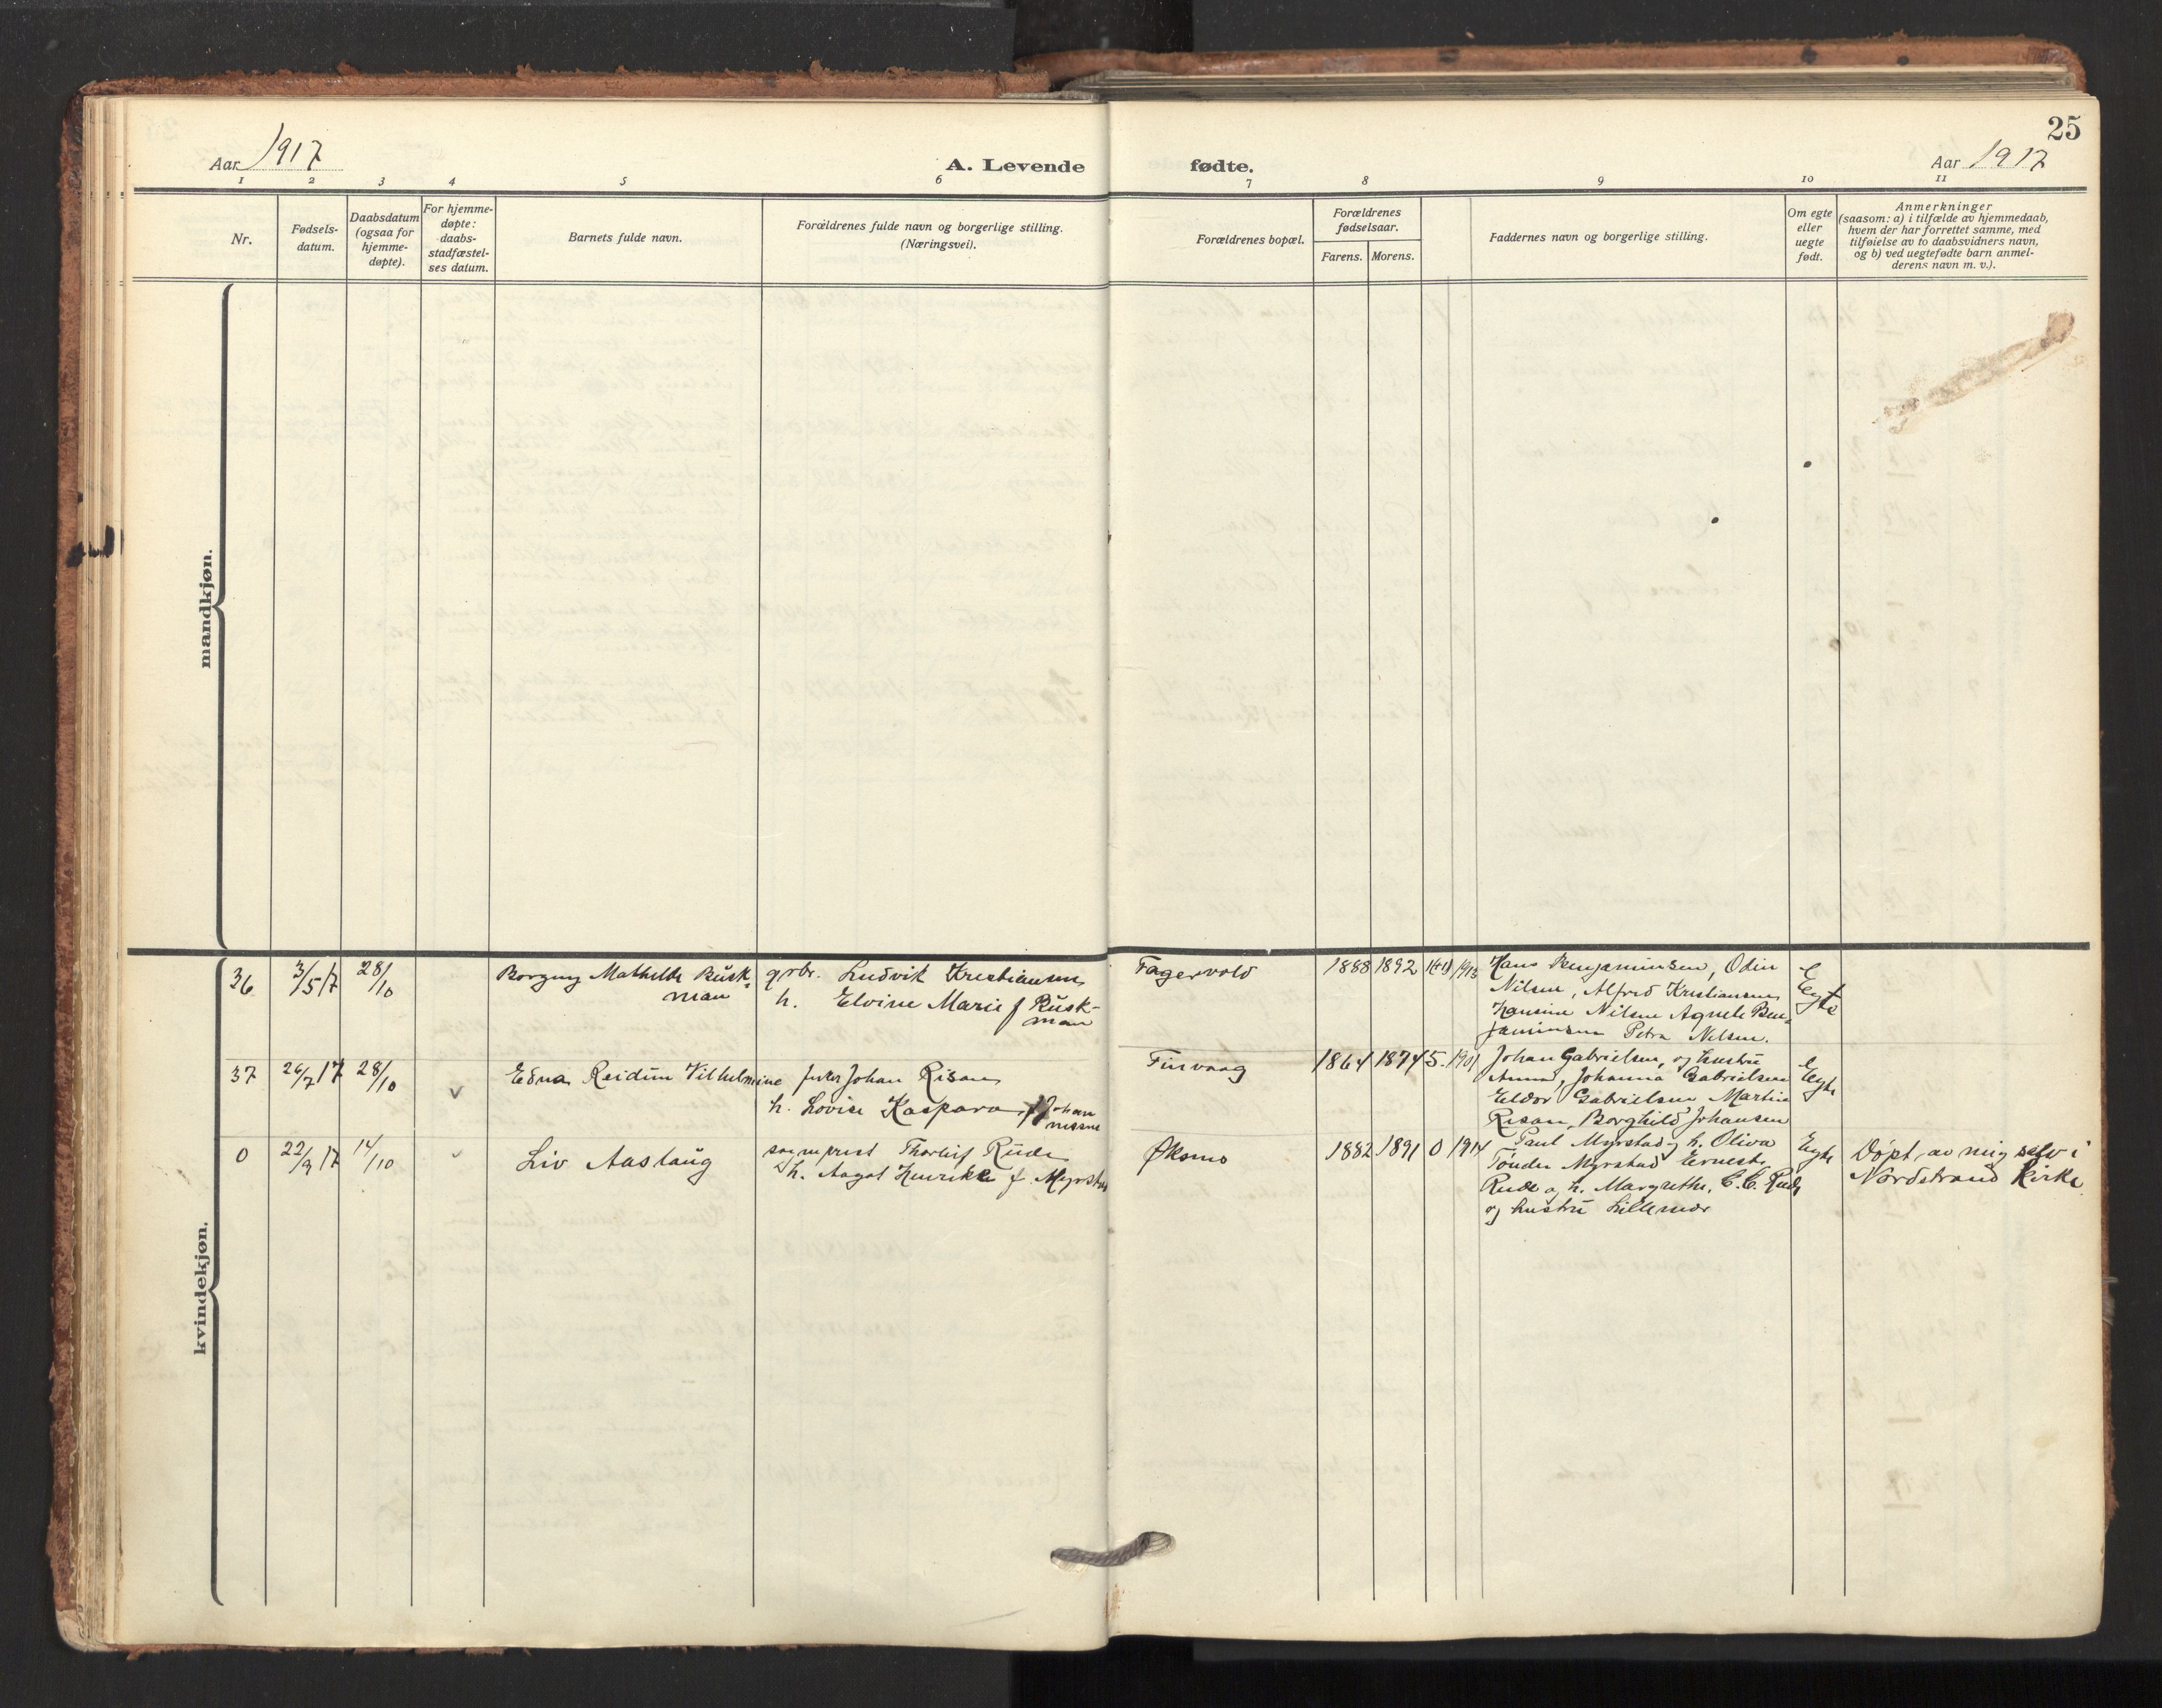 25
Aar 1917
A. Levende
fødte.
Aar 1917
1 2 3 4 5 6 7 8 9 10 11
Nr.
Fødsels-
datum.
Daabsdatum
(ogsaa for
hjemme-
døpte).
For hjemme-
døpte:
daabs-
stadfæstel-
ses datum.
Barnets fulde navn.
Forældrenes fulde navn og borgerlige stilling.
(Næringsvei).
Forældrenes bopæl.
Forældrenes
fødselsaar.
Farens. Morens.
Faddernes navn og borgerlige stilling.
Om egte
eller
uegte
født.
Anmerkninger
(saasom: a) i tilfælde av hjemmedaab,
hvem der har forrettet samme, med
tilføielse av to daabsvidners navn,
og b) ved uegtefødte barn anmel-
derens navn m. v.).
mandkjøn.
kvindekjøn.
36
3/5 17
28/10
Borgny Mathilde Rusk-
man
grbr. Ludvik Kristiansen
h. Elvine Marie f Rusk-
man
Fagervold
1888 1892 1913
Hans Benjaminsen, Odin
Nilsen, Alfred Kristiansen
Hansine Nilsen Agnete Ben-
jaminsen Petra Nilsen.
Egte
37
26/7 17
28/10
v
Edna Reidun Vilhelmine
fisker Johan Risan
h. Lovise Kaspara f Johan
nesen
Finvaag
1864 1874 5. 1901
Johan Gabrielsen, og hustru
Anna, Johanna Gabrielsen
Eldor Gabrielsen Martin
Risan, Borghild Johansen
Egte
0
22/9 17
14/10
v
Liv Aaslaug
sogneprest Thorleif Rude
h. Aagot Henrikke f. Myrstad
Øksnes
1882 1891 0 1914
Paul Myrstad og h. Oliva
Tønder Myrstad Erneste
Rude og h. Margrethe, C. C. Rude
og hustru Lillemor
Egte
Døpt av mig selv i
Nordstrand Kirke